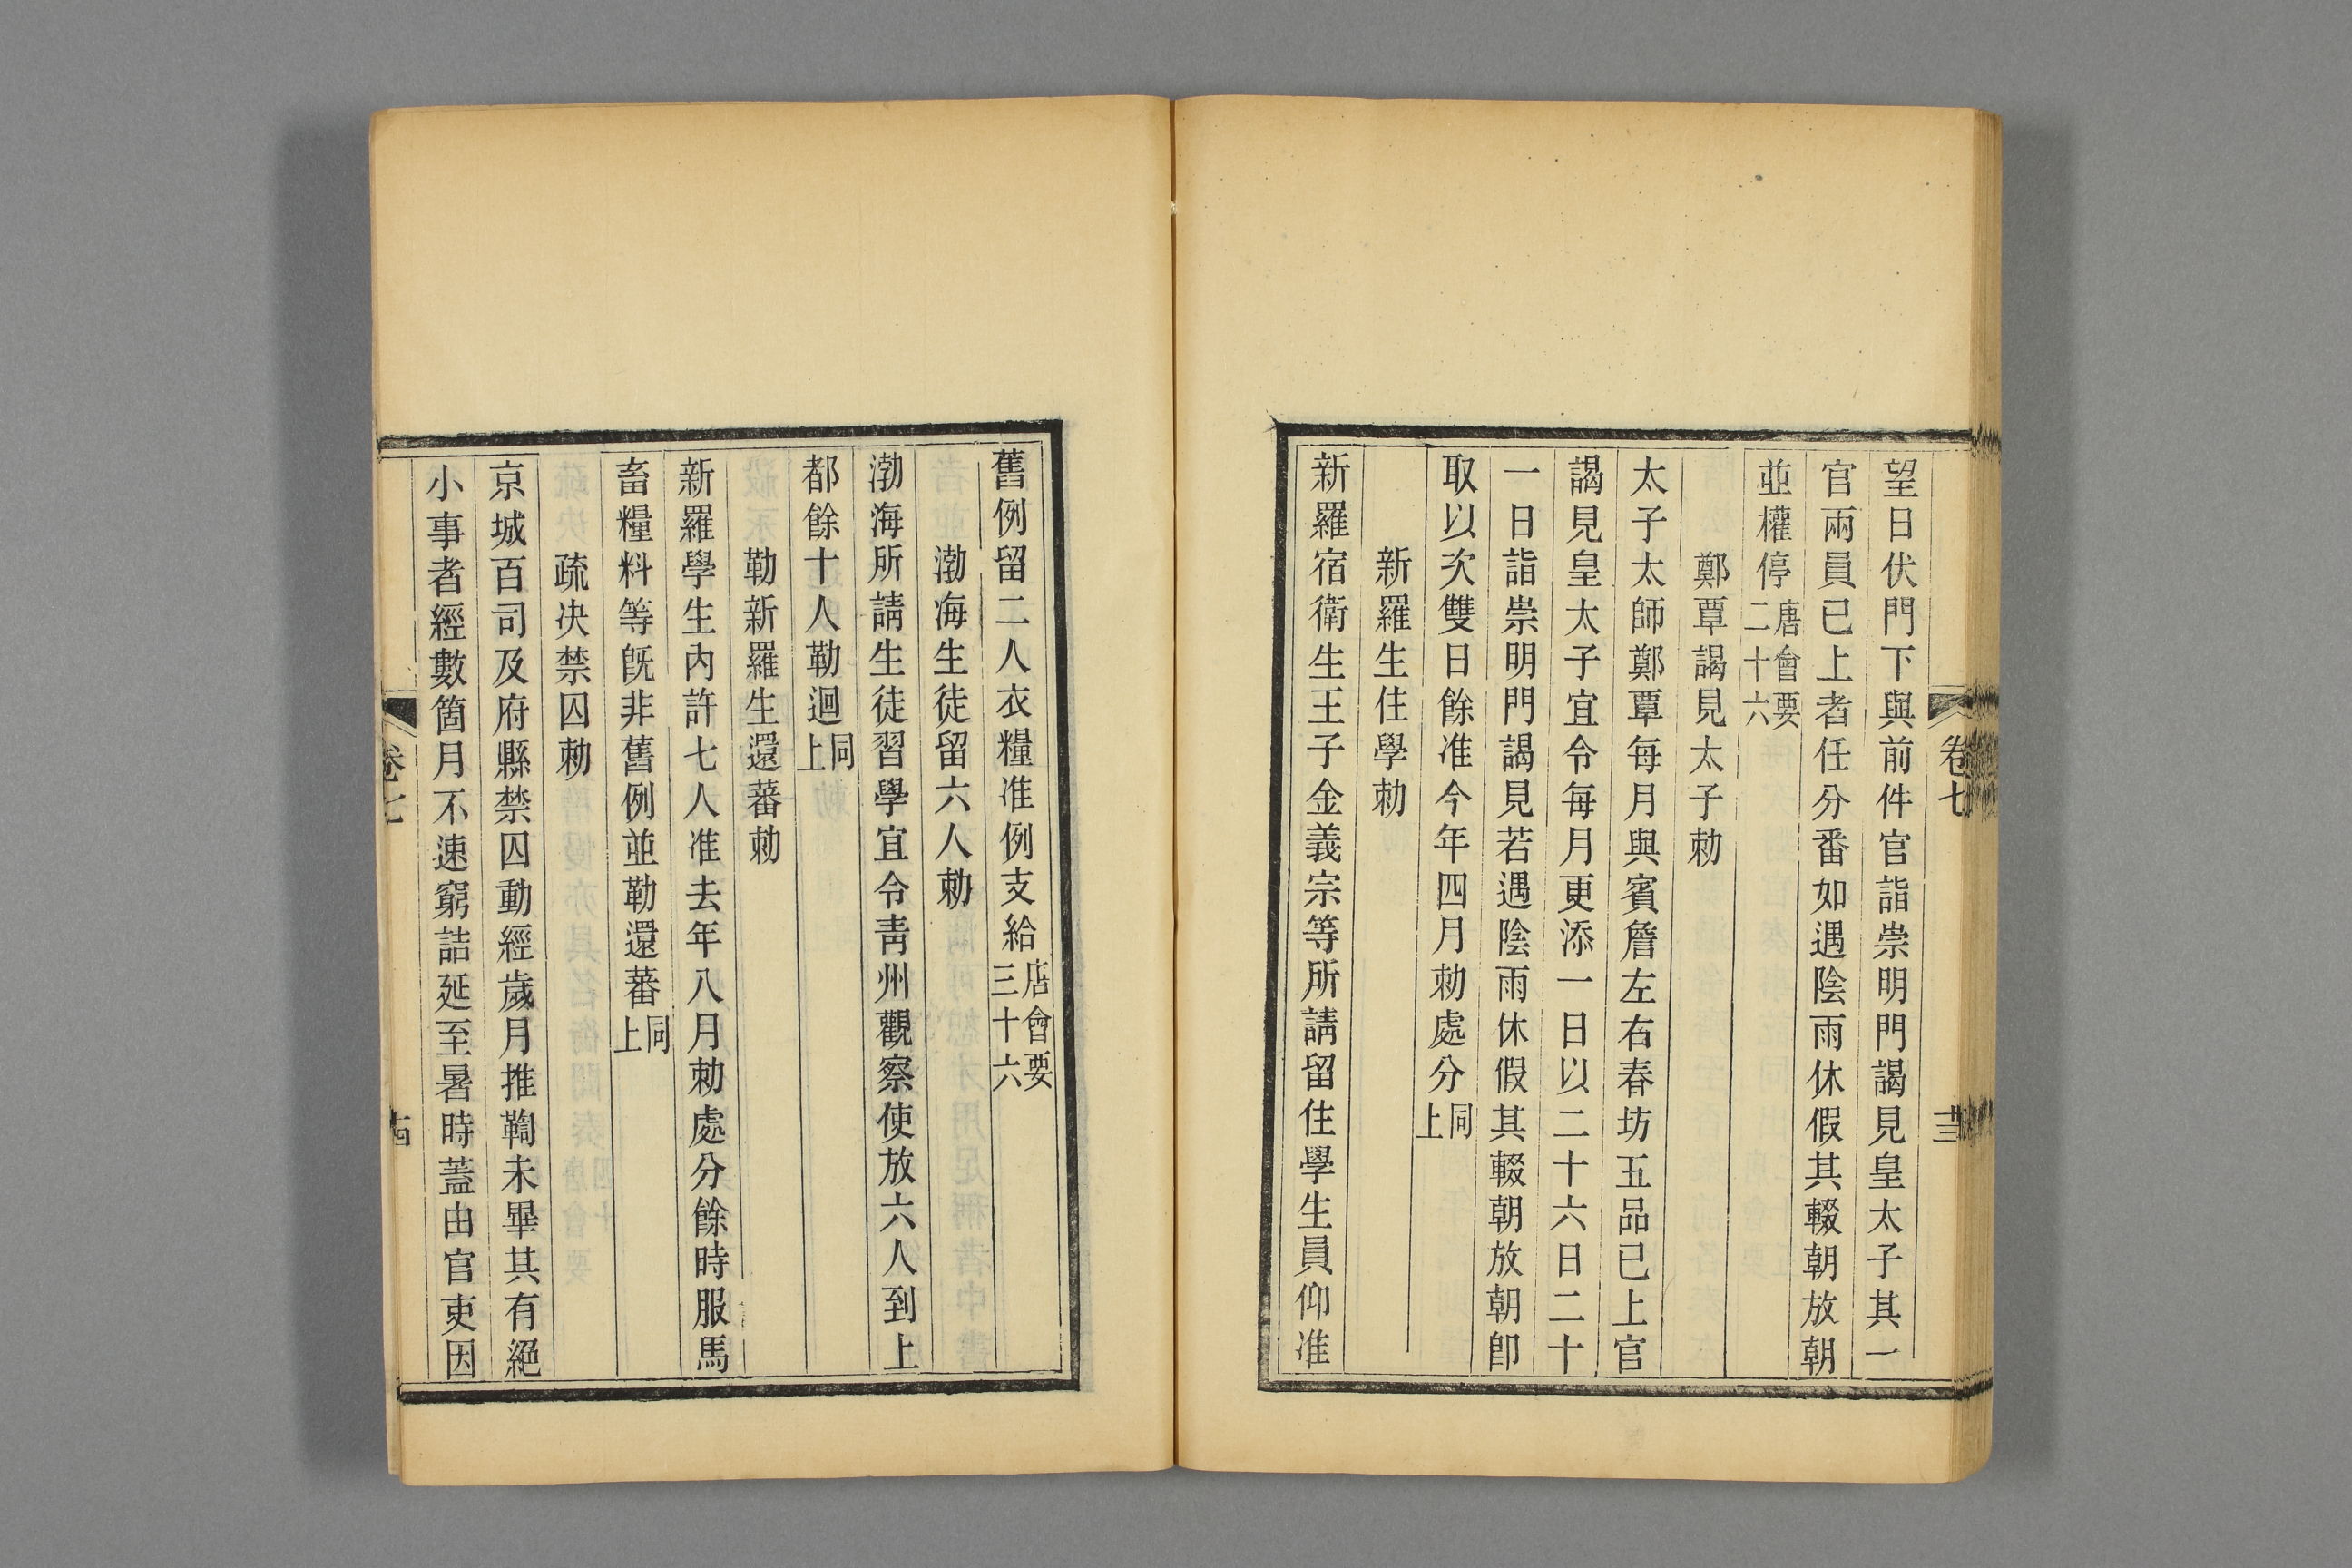 望日伏門下與前件官詣崇明門謁見皇太子其一
官兩員已上者任分番如遇陰雨休假其輟朝放朝
並權停唐會要二十六
鄭覃謁見太子勅
太子太師鄭覃每月與賓詹左右春坊五品已上官
謁見皇太子宜令每月更添一日以二十六日二十
一日詣崇明門謁見若遇陰雨休假其輟朝放朝卽
取以次雙日餘准今年四月勅處分同上
新羅生住學勅
新羅宿衛生王子金義宗等所請留住學生員仰准
卷七
舊例留二人衣糧准例支給店會要三十六
渤海生徒留六人勅
渤海所請生徒習學宜令靑州觀察使放六人到上
都餘十人勒迴同上
勒新羅生還蕃勅
新羅學生內許七人准去年八月勅處分餘時服馬
畜糧料等旣非舊例並勒還蕃同上
疏决禁囚勅
京城百司及府縣禁囚動經歲月推鞫未畢其有絕
小事者經數箇月不速窮詰延至暑時蓋由官吏因
卷七